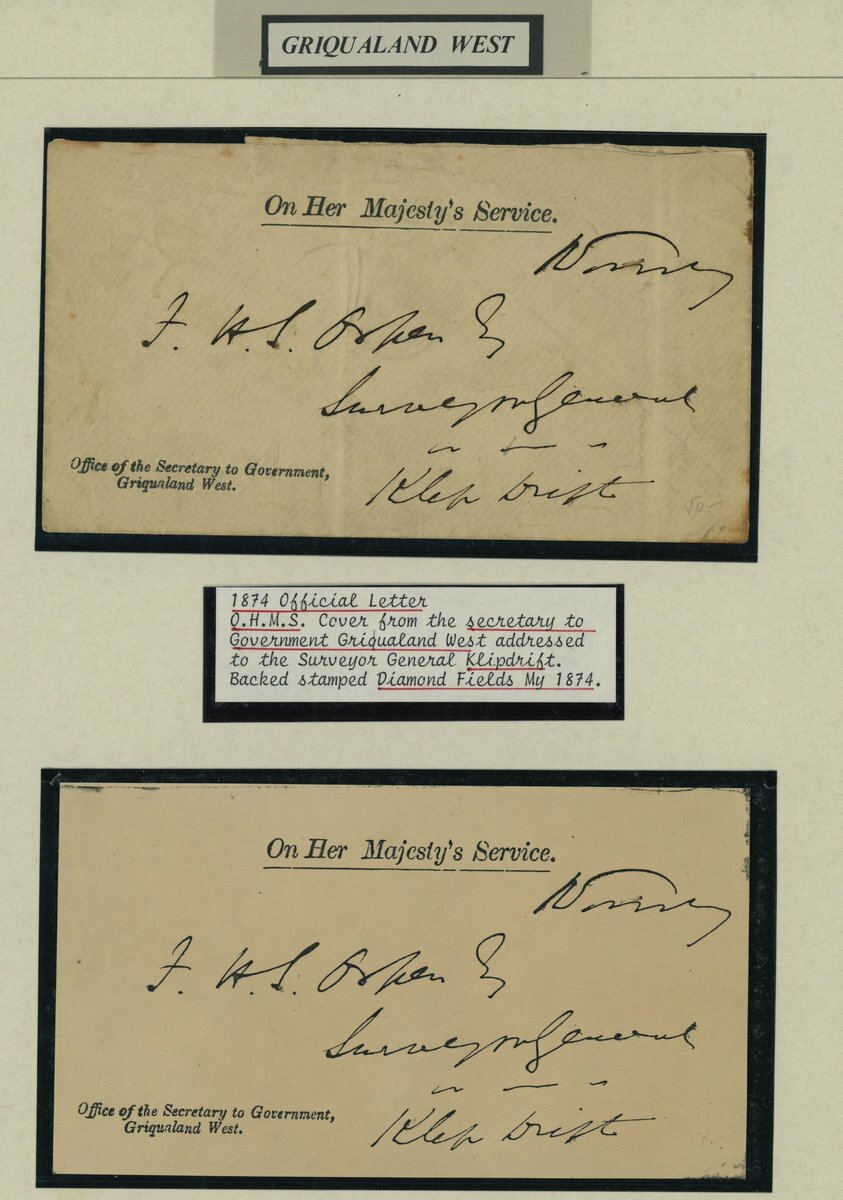 GRIQUALAND WEST
On Her Majesty's Service.
F. H. S. Orpen Esq
Surveyor General
Klip Drift
Office of the Secretary to Government,
Griqualand West.
50-
1874 Official Letter
O.H.M.S. Cover from the secretary to
Government Griqualand West addressed
to the Surveyor General Klipdrift.
Backed stamped Diamond Fields My 1874.
On Her Majesty's Service.
F. H. S. Orpen Esq
Surveyor General
Klip Drift
Office of the Secretary to Government,
Griqualand West.